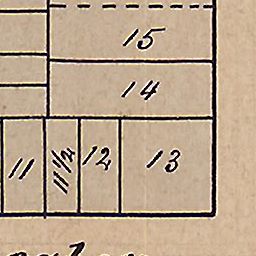 15
14
11 11½ 12 13